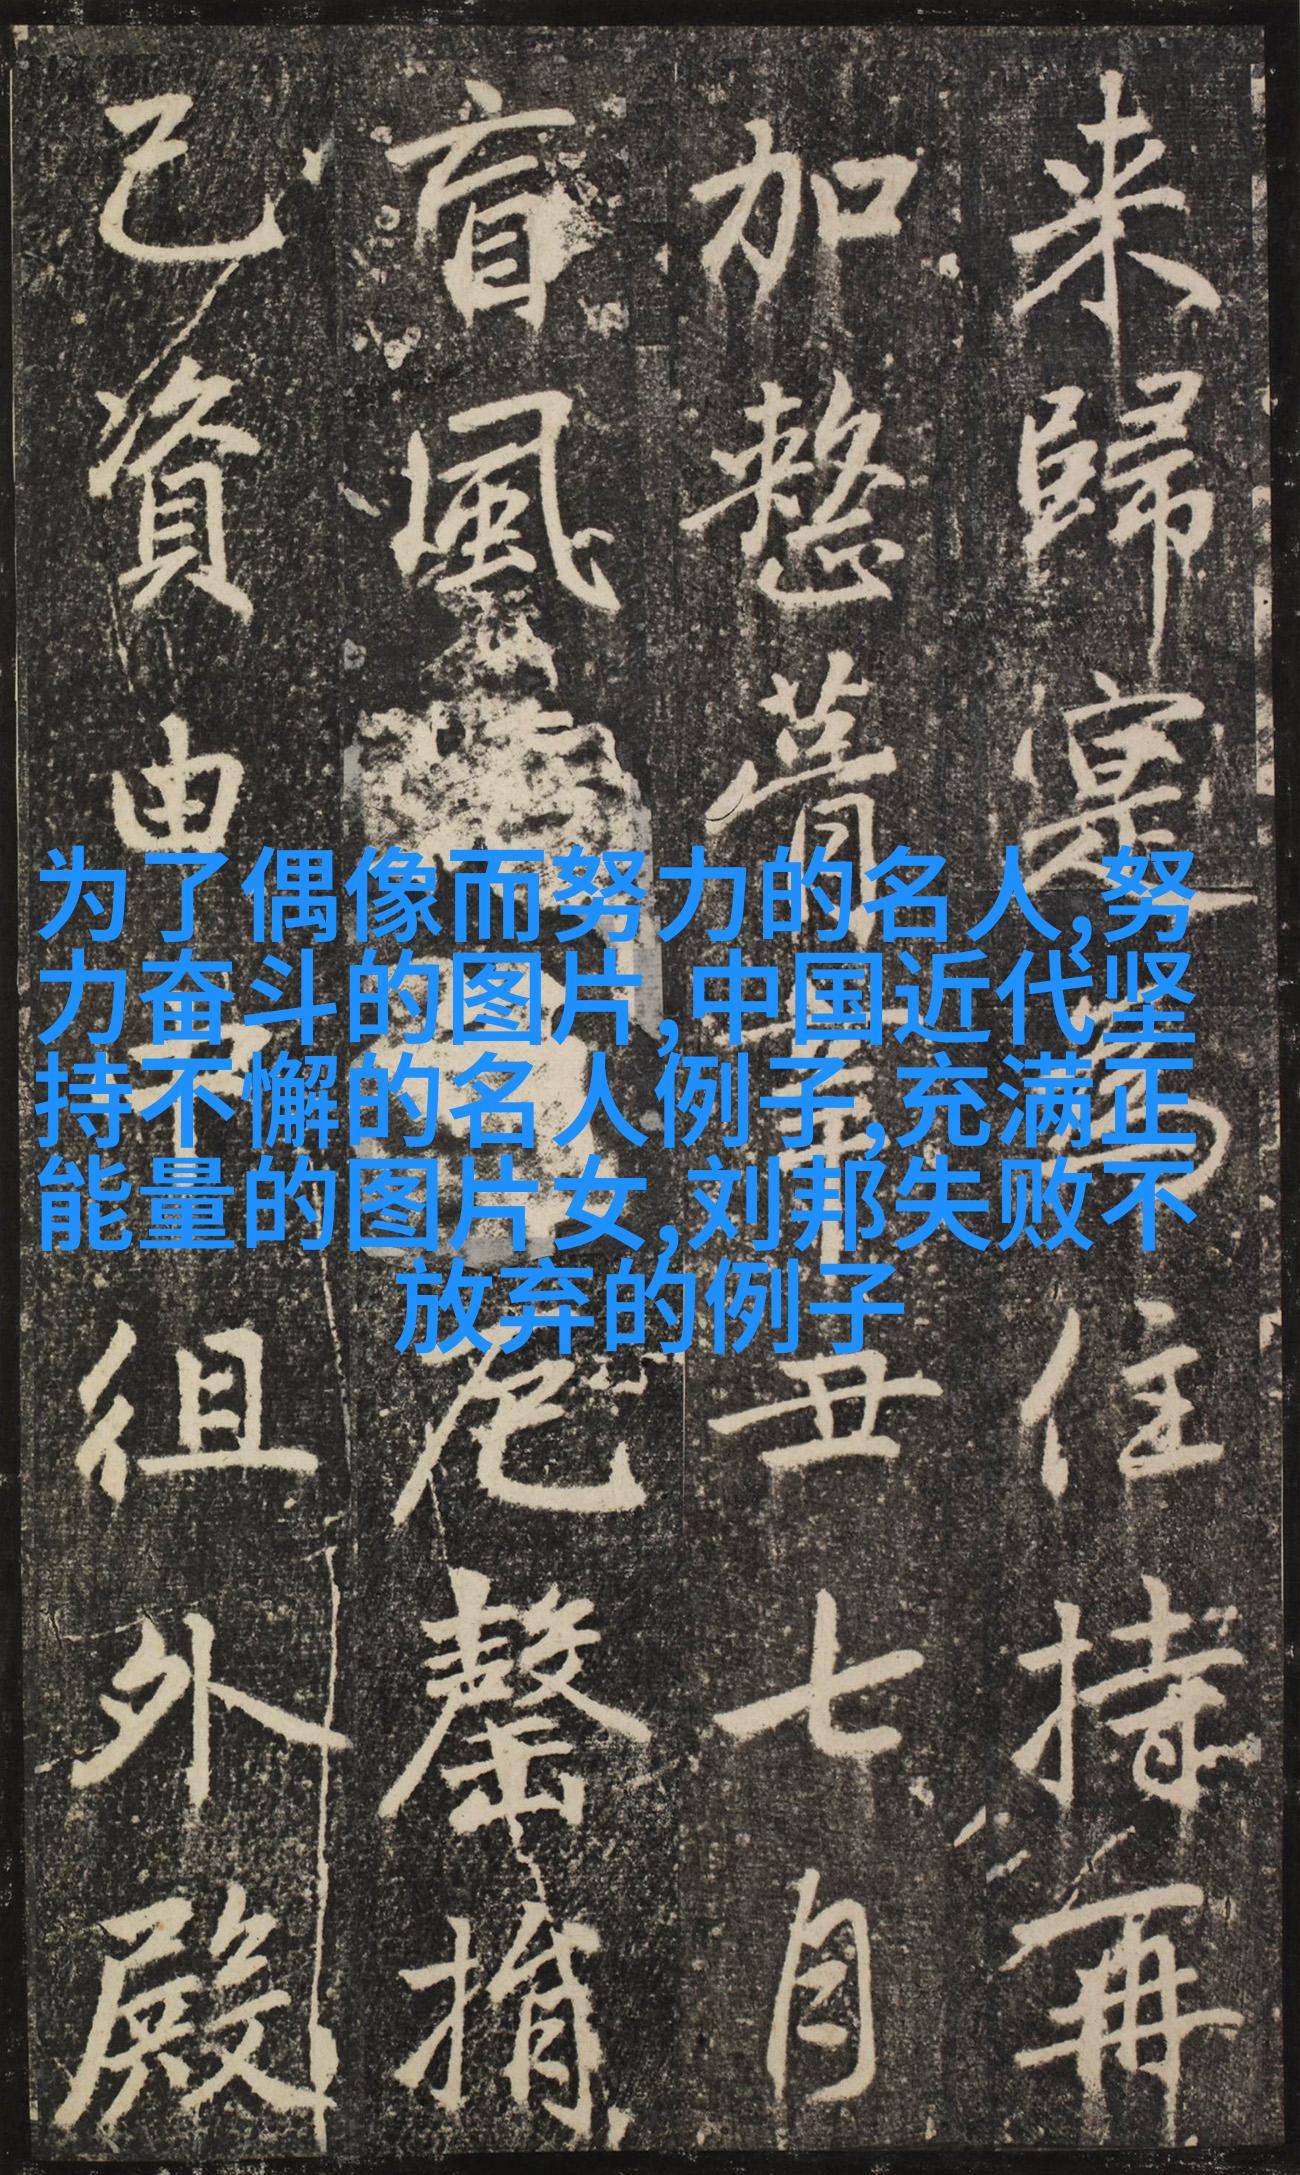 来歸寔為住持再
加整葺辛丑七月
盲風尼罄捐
己資由中徂外殿
为了偶像而努力的名人,努
力奋斗的图片,中国近代坚
持不懈的名人例子,充满正
能量的图片女,刘邦失败不
放弃的例子